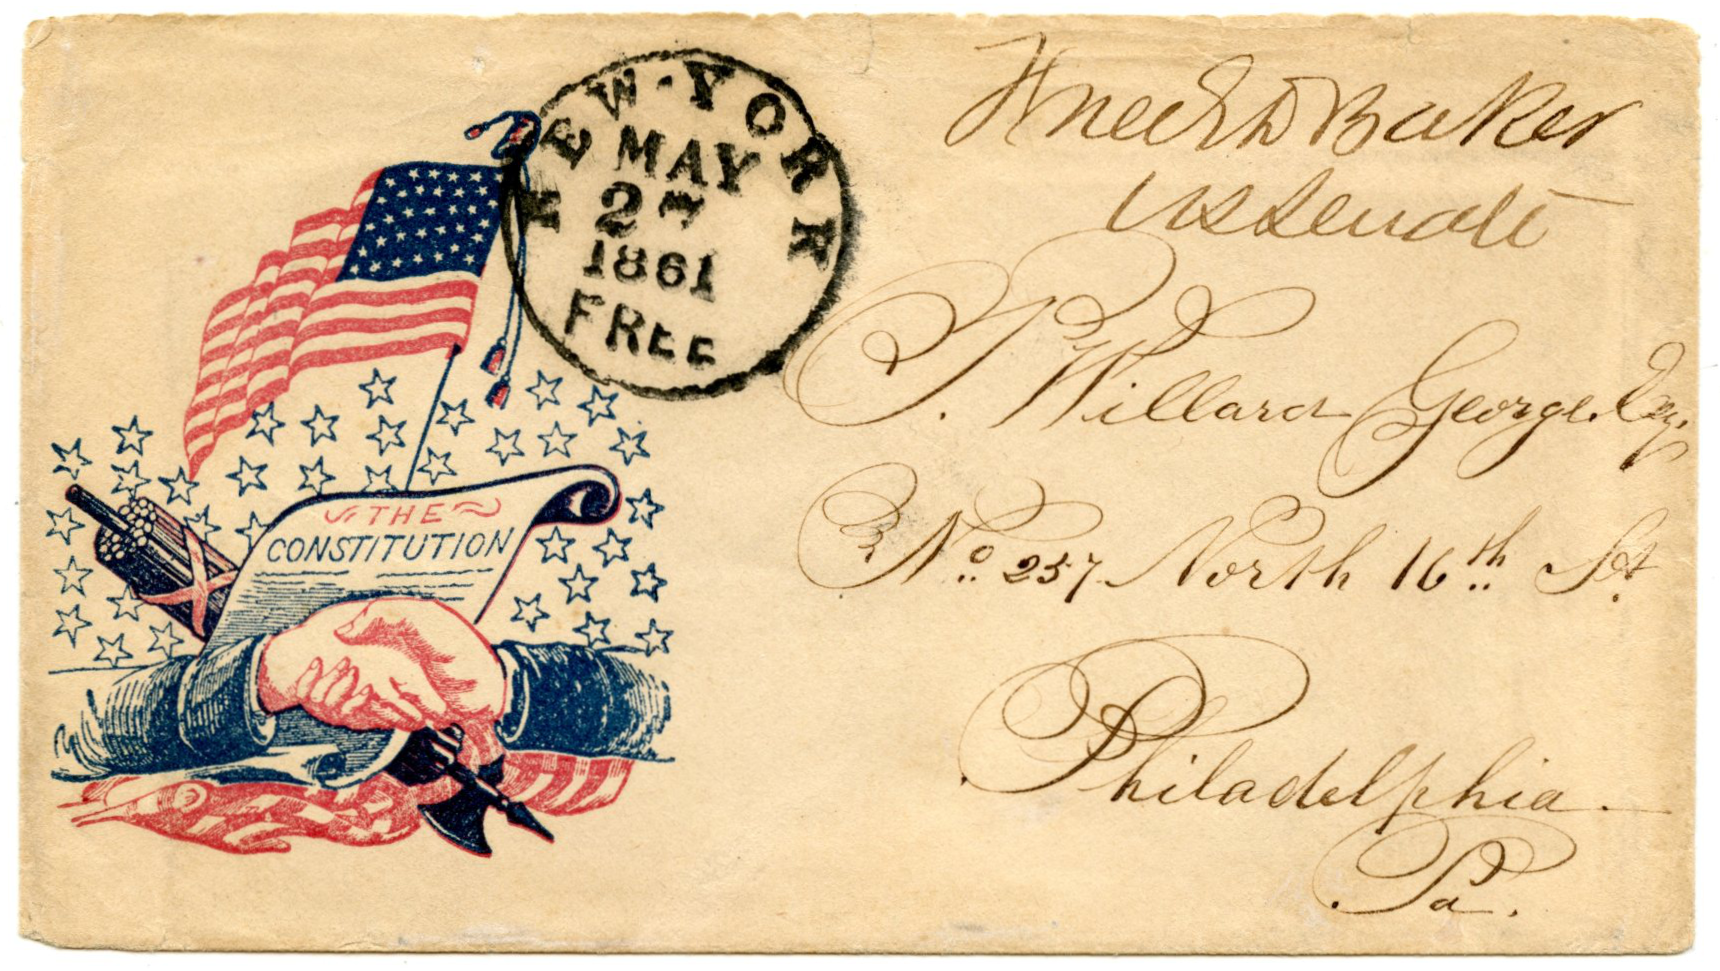 NEW-YORK
MAY
27
1861
FREE
THE
CONSTITUTION
Free E D Baker
US Senate
P. Willard George. Esq.
No. 257 North 16th St.
Philadelphia.
Pa.